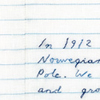 In 1912
Norwegian
Pole. We
and gro